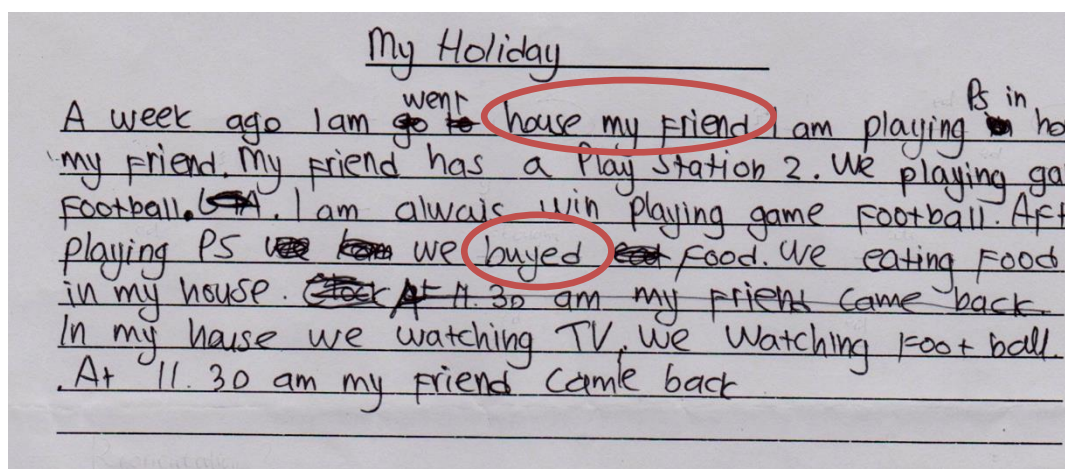 My Holiday
A week ago I am went house my friend I am playing PS in ho
my friend. My friend has a Play Station 2. We playing ga
football. I am alwais win playing game football. Aft
playing PS we buyed food. We eating food
in my house. At 11.30 am my friend came back
In my house we watching TV. We watching football.
. At 11.30 am my friend came back